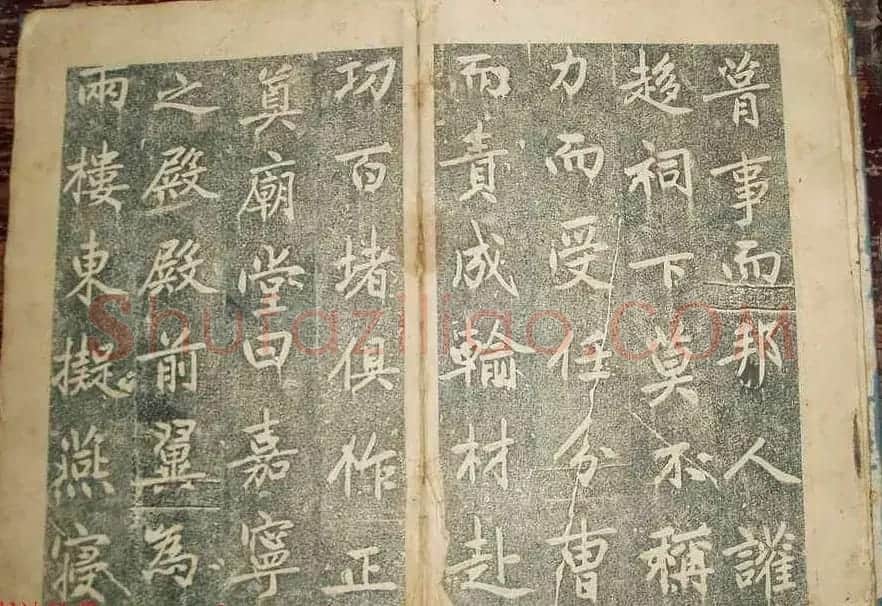 胥事而邦人讙
趍祠下莫不稱
力而受任分曹
而責成輸材赴
功百堵俱作正
奠廟堂曰嘉寧
之殿殿前翼為
兩樓東擬燕寢
Shufaziliao.COM